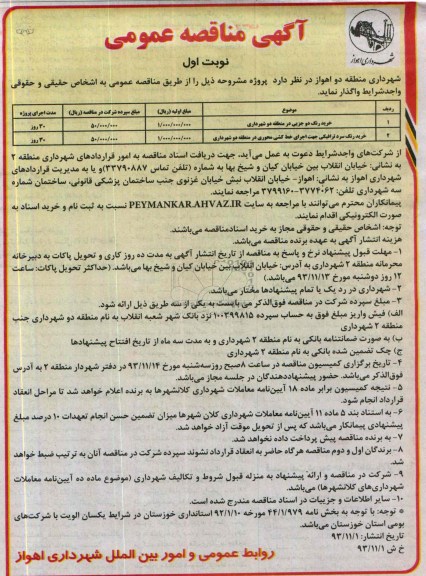 آگهی مناقصه عمومی
نوبت اول
شهرداری اهواز
شهرداری منطقه دو اهواز در نظر دارد پروژه مشروحه ذیل را از طریق مناقصه عمومی به اشخاص حقیقی و حقوقی
واجدشرایط واگذار نماید.
ردیف موضوع مبلغ اولیه (ریال) مبلغ سپرده شرکت در مناقصه (ریال) مدت اجرای پروژه
۱ خرید رنگ دو جزیی در منطقه دو شهرداری ۱/۰۰۰/۰۰۰/۰۰۰ ۵۰/۰۰۰/۰۰۰ ۳۰ روز
۲ خرید رنگ سرد ترافیکی جهت اجرای خط کشی محوری در منطقه دو شهرداری ۱/۰۰۰/۰۰۰/۰۰۰ ۵۰/۰۰۰/۰۰۰ ۳۰ روز
از شرکت‌های واجدشرایط دعوت به عمل می‌آید. جهت دریافت اسناد مناقصه به امور قراردادهای شهرداری منطقه ۲
به نشانی: خیابان انقلاب بین خیابان کیان و شیخ بها به شماره (تلفن تماس ۳۳۷۹۰۸۸۷) و یا به مدیریت قراردادهای
شهرداری اهواز به نشانی: اهواز- خیابان انقلاب نبش خیابان غزنوی جنب ساختمان پزشکی قانونی، ساختمان شماره
سه شهرداری تلفن: ۳۷۷۴۰۶۲-۳۷۹۹۱۶۰۰ مراجعه نمایند.
پیمانکاران محترم می‌توانند با مراجعه به سایت PEYMANKAR.AHVAZ.IR نسبت به ثبت نام و خرید اسناد به
صورت الکترونیکی اقدام نمایند.
توجه: اشخاص حقیقی و حقوقی مجاز به خرید اسناد مناقصه می‌باشند.
هزینه انتشار آگهی به عهده برنده مناقصه می‌باشد.
۱- مهلت قبول پیشنهاد نرخ و پاسخ به مناقصه از تاریخ انتشار آگهی به مدت ده روز کاری و تحویل پاکات به دبیرخانه
محرمانه منطقه ۲ شهرداری به آدرس: خیابان انقلاب بین خیابان کیان و شیخ بها می‌باشد. (حداکثر تحویل پاکات: ساعت
۱۲ روز دوشنبه مورخ ۹۳/۱۱/۱۳ می‌باشد).
۲- شهرداری در رد یک یا تمام پیشنهادها مختار می‌باشد.
۳- مبلغ سپرده شرکت در مناقصه فوق‌الذکر می بایست به یکی از سه طریق ذیل ارائه شود.
الف) فیش واریز مبلغ فوق به حساب سپرده ۱۰۰۳۹۹۸۱۵ نزد بانک شهر شعبه انقلاب به نام منطقه دو شهرداری جنب
منطقه ۲ شهرداری
ب) به صورت ضمانتنامه بانکی به نام منطقه ۲ شهرداری و به مدت سه ماه از تاریخ افتتاح پیشنهادها
ج) چک تضمین شده بانکی به نام منطقه ۲ شهرداری
۴- تاریخ برگزاری کمیسیون مناقصه در ساعت ۸صبح روزسه‌شنبه مورخ ۹۳/۱۱/۱۴ در دفتر شهردار منطقه ۲ به آدرس
فوق‌الذکر می‌باشد. حضور پیشنهاددهندگان در جلسه مجاز می‌باشد.
۵- نتیجه کمیسیون برابر ماده ۱۸ آیین‌نامه معاملات شهرداری کلانشهرها به برنده اعلام خواهد شد تا مراحل انعقاد
قرارداد انجام شود.
۶- به استناد بند ۵ ماده ۱۱ آیین‌نامه معاملات شهرداری کلان شهرها میزان تضمین حسن انجام تعهدات ۱۰ درصد مبلغ
پیشنهادی پیمانکار می‌باشد که پس از تحویل موقت آزاد خواهد شد.
۷- به برنده مناقصه پیش پرداخت داده نخواهد شد.
۸- برندگان اول و دوم مناقصه هرگاه حاضر به انعقاد قرارداد نشوند سپرده شرکت در مناقصه آنان به ترتیب ضبط خواهد
شد.
۹- شرکت در مناقصه و ارائه پیشنهاد به منزله قبول شروط و تکالیف شهرداری (موضوع ماده ده آیین‌نامه معاملات
شهرداری‌های کلانشهرها) می‌باشد.
۱۰- سایر اطلاعات و جزییات در اسناد مناقصه مندرج شده است.
* توجه: با توجه به بخش نامه ۴۴/۱/۹۷۹ مورخه ۹۲/۱/۱۰ استانداری خوزستان در شرایط یکسان الویت با شرکت‌های
بومی استان خوزستان می‌باشد.
تاریخ انتشار: ۹۳/۱۱/۱
خ ش ۹۳/۱۱/۱
روابط عمومی و امور بین الملل شهرداری اهواز